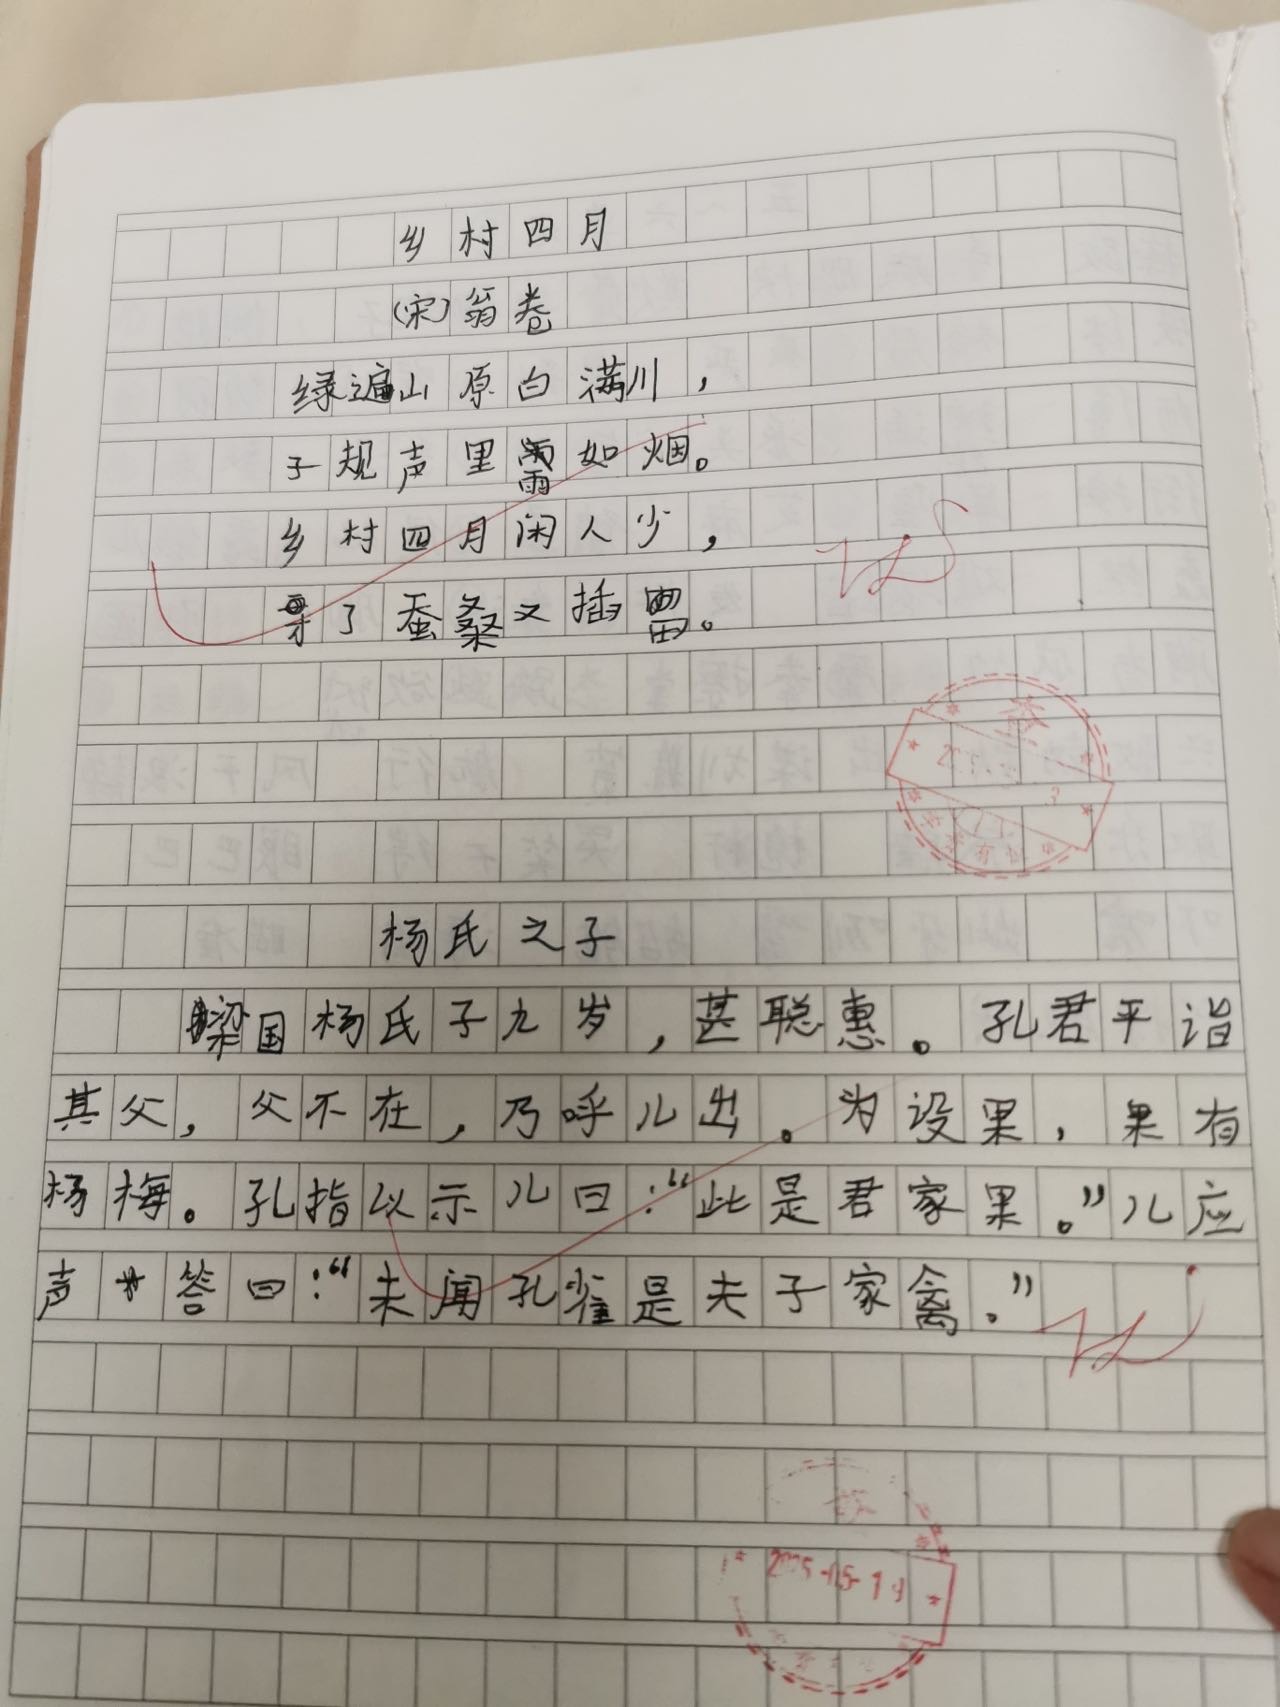 乡村四月
(宋)翁卷
绿遍山原白满川，
子规声里雨如烟。
乡村四月闲人少，
了蚕桑又插田。
杨氏之子
梁国杨氏子九岁，甚聪惠。孔君平诣
其父，父不在，乃呼儿出。为设果，果有
杨梅。孔指以示儿曰：“此是君家果。”儿应
声答曰：“未闻孔雀是夫子家禽。”